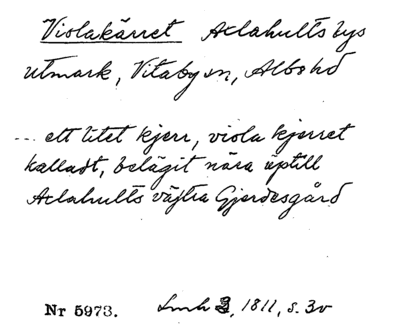 Violakärret Aclahults bys
utmark, Vitaby sn, Albo hd
... ett litet kjerr, viola kjerret
kalladt, belägit nära uptill
Aclahults västra Gjerdesgård
Nr 5973. Lmh 3, 1811, s. 3v